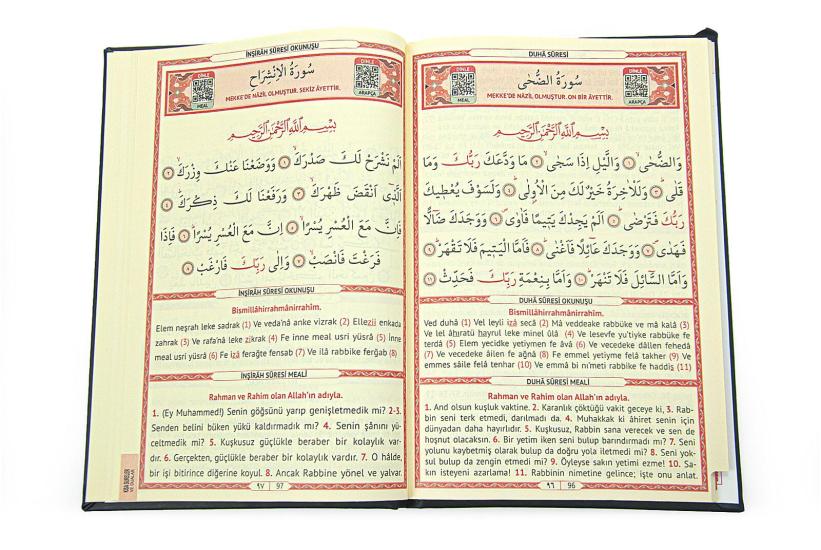 DUHÂ SÛRESİ
DİNLE
MEAL
سُورَةُ الضُّحٰى
MEKKE'DE NÂZİL OLMUŞTUR. ON BİR ÂYETTİR.
DİNLE
ARAPÇA
بِسْمِ اللّٰهِ الرَّحْمٰنِ الرَّحِيمِ
وَالضُّحٰىۙ ﴿١﴾ وَالَّيْلِ اِذَا سَجٰىۙ ﴿٢﴾ مَا وَدَّعَكَ رَبُّكَ وَمَا
قَلٰىۜ ﴿٣﴾ وَلَلْاٰخِرَةُ خَيْرٌ لَكَ مِنَ الْاُو۫لٰىۜ ﴿٤﴾ وَلَسَوْفَ يُعْط۪يكَ
رَبُّكَ فَتَرْضٰىۜ ﴿٥﴾ اَلَمْ يَجِدْكَ يَت۪يمًا فَاٰوٰىۖ ﴿٦﴾ وَوَجَدَكَ ضَٓالًّا
فَهَدٰىۖ ﴿٧﴾ وَوَجَدَكَ عَٓائِلًا فَاَغْنٰىۜ ﴿٨﴾ فَاَمَّا الْيَت۪يمَ فَلَا تَقْهَرْۜ ﴿٩﴾
وَاَمَّا السَّٓائِلَ فَلَا تَنْهَرْۜ ﴿١٠﴾ وَاَمَّا بِنِعْمَةِ رَبِّكَ فَحَدِّثْ ﴿١١﴾
DUHÂ SÛRESİ OKUNUŞU
Bismillâhirrahmânirrahîm.
Ved duhâ (1) Vel leyli izâ secâ (2) Mâ veddeake rabbüke ve mâ kalâ (3)
Ve lel âhıratü hayrul leke minel ûlâ (4) Ve lesevfe yu'tiyke rabbüke fe
terdâ (5) Elem yecidke yetiymen fe âvâ (6) Ve vecedeke dâllen fehedâ
(7) Ve vecedeke âilen fe ağnâ (8) Fe emmel yetiyme felâ takher (9) Ve
emmes sâile felâ tenher (10) Ve emmâ bi nı'meti rabbike fe haddis (11)
DUHÂ SÛRESİ MEALİ
Rahman ve Rahim olan Allah'ın adıyla.
1. And olsun kuşluk vaktine. 2. Karanlık çöktüğü vakit geceye ki, 3. Rab-
bin seni terk etmedi, darılmadı da. 4. Muhakkak ki âhiret senin için
dünyadan daha hayırlıdır. 5. Kuşkusuz, Rabbin sana verecek ve sen de
hoşnut olacaksın. 6. Bir yetim iken seni bulup barındırmadı mı? 7. Seni
yolunu kaybetmiş olarak bulup da doğru yola iletmedi mi? 8. Seni yok-
sul bulup da zengin etmedi mi? 9. Öyleyse sakın yetimi ezme! 10. Sa-
kın isteyeni azarlama! 11. Rabbinin nimetine gelince; işte onu anlat.
٩٦ 96
İNŞİRÂH SÛRESİ OKUNUŞU
DİNLE
MEAL
سُورَةُ الْاِنْشِرَاحِ
MEKKE'DE NÂZİL OLMUŞTUR. SEKİZ ÂYETTİR.
DİNLE
ARAPÇA
بِسْمِ اللّٰهِ الرَّحْمٰنِ الرَّحِيمِ
اَلَمْ نَشْرَحْ لَكَ صَدْرَكَۙ ﴿١﴾ وَوَضَعْنَا عَنْكَ وِزْرَكَۙ ﴿٢﴾
اَلَّذ۪ٓي اَنْقَضَ ظَهْرَكَۙ ﴿٣﴾ وَرَفَعْنَا لَكَ ذِكْرَكَۜ ﴿٤﴾
فَاِنَّ مَعَ الْعُسْرِ يُسْرًاۙ ﴿٥﴾ اِنَّ مَعَ الْعُسْرِ يُسْرًاۜ ﴿٦﴾ فَاِذَا
فَرَغْتَ فَانْصَبْۙ ﴿٧﴾ وَاِلٰى رَبِّكَ فَارْغَبْ ﴿٨﴾
İNŞİRÂH SÛRESİ OKUNUŞU
Bismillâhirrahmânirrahîm.
Elem neşrah leke sadrak (1) Ve veda'nâ anke vizrak (2) Ellezii enkada
zahrak (3) Ve rafa'nâ leke zikrak (4) Fe inne meal usri yüsrâ (5) İnne
meal usri yüsrâ (6) Fe izâ ferağte fensab (7) Ve ilâ rabbike ferğab (8)
İNŞİRÂH SÛRESİ MEALİ
Rahman ve Rahim olan Allah'ın adıyla.
1. (Ey Muhammed!) Senin göğsünü yarıp genişletmedik mi? 2-3.
Senden belini büken yükü kaldırmadık mı? 4. Senin şânını yü-
celtmedik mi? 5. Kuşkusuz güçlükle beraber bir kolaylık var-
dır. 6. Gerçekten, güçlükle beraber bir kolaylık vardır. 7. O hâlde,
bir işi bitirince diğerine koyul. 8. Ancak Rabbine yönel ve yalvar.
٩٧ 97
KISA SURELER
VE DUALAR